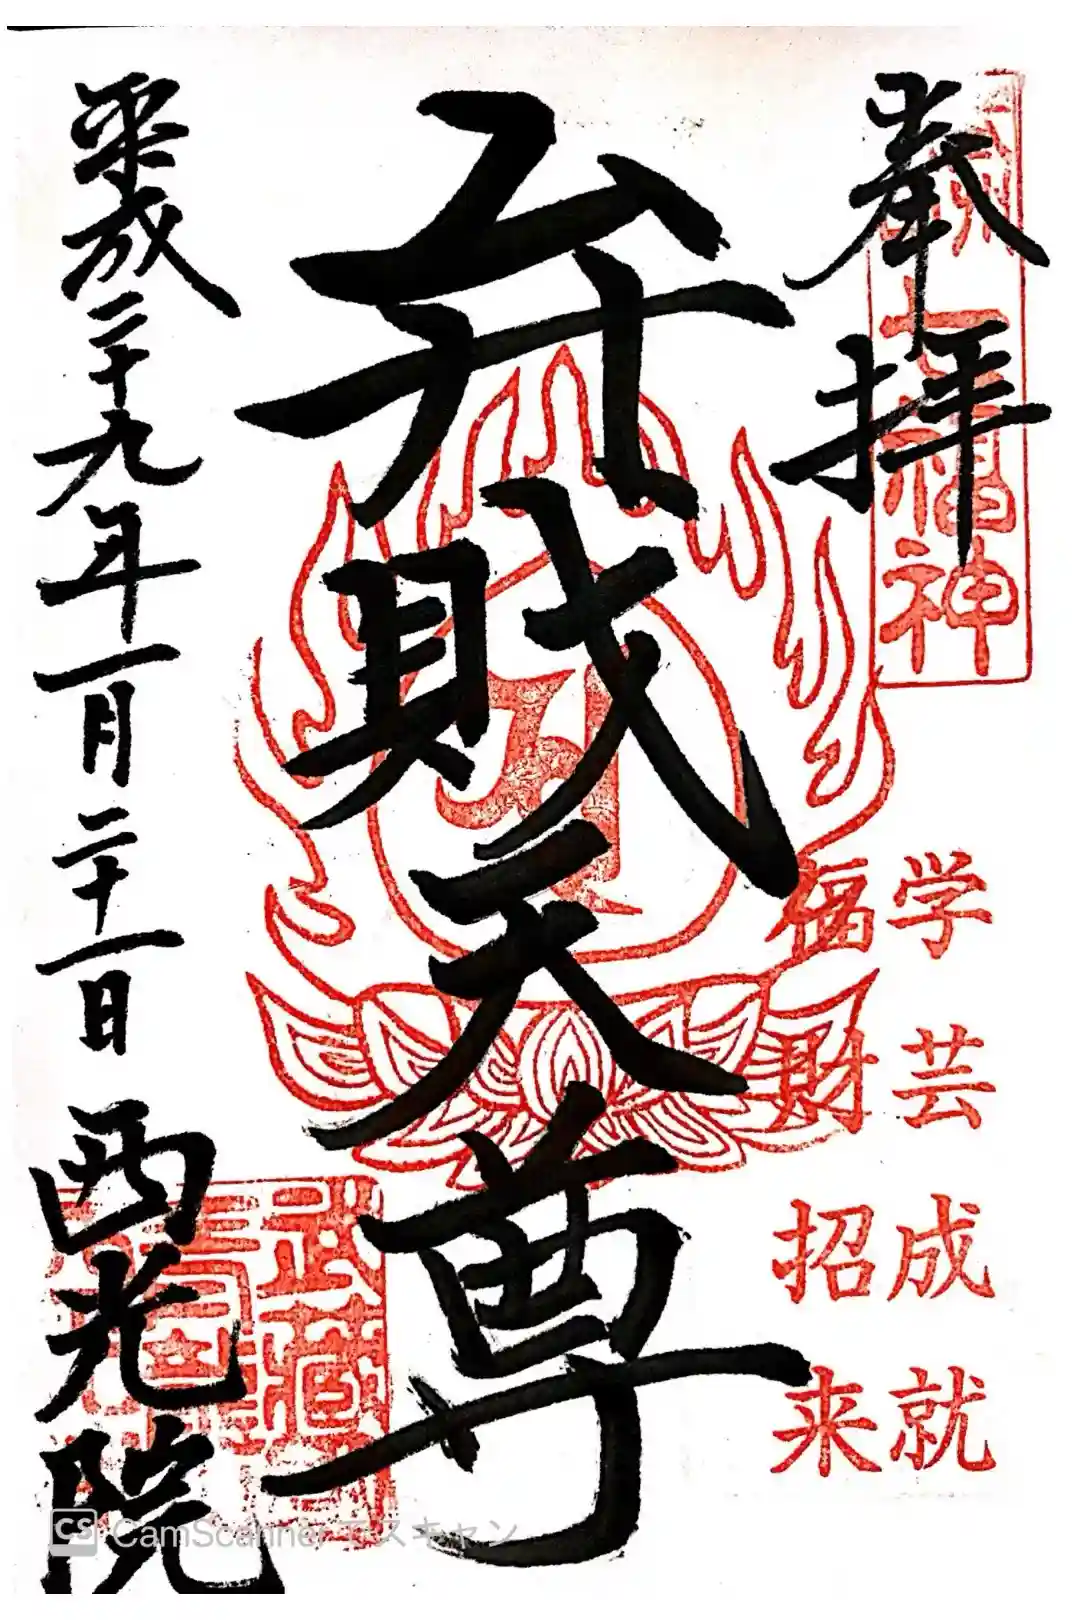 奉拝
七福神
学芸成就
福財招来
弁財天尊
平成二十九年一月二十一日
西光院
武蔵
CS CamScannerでスキャン